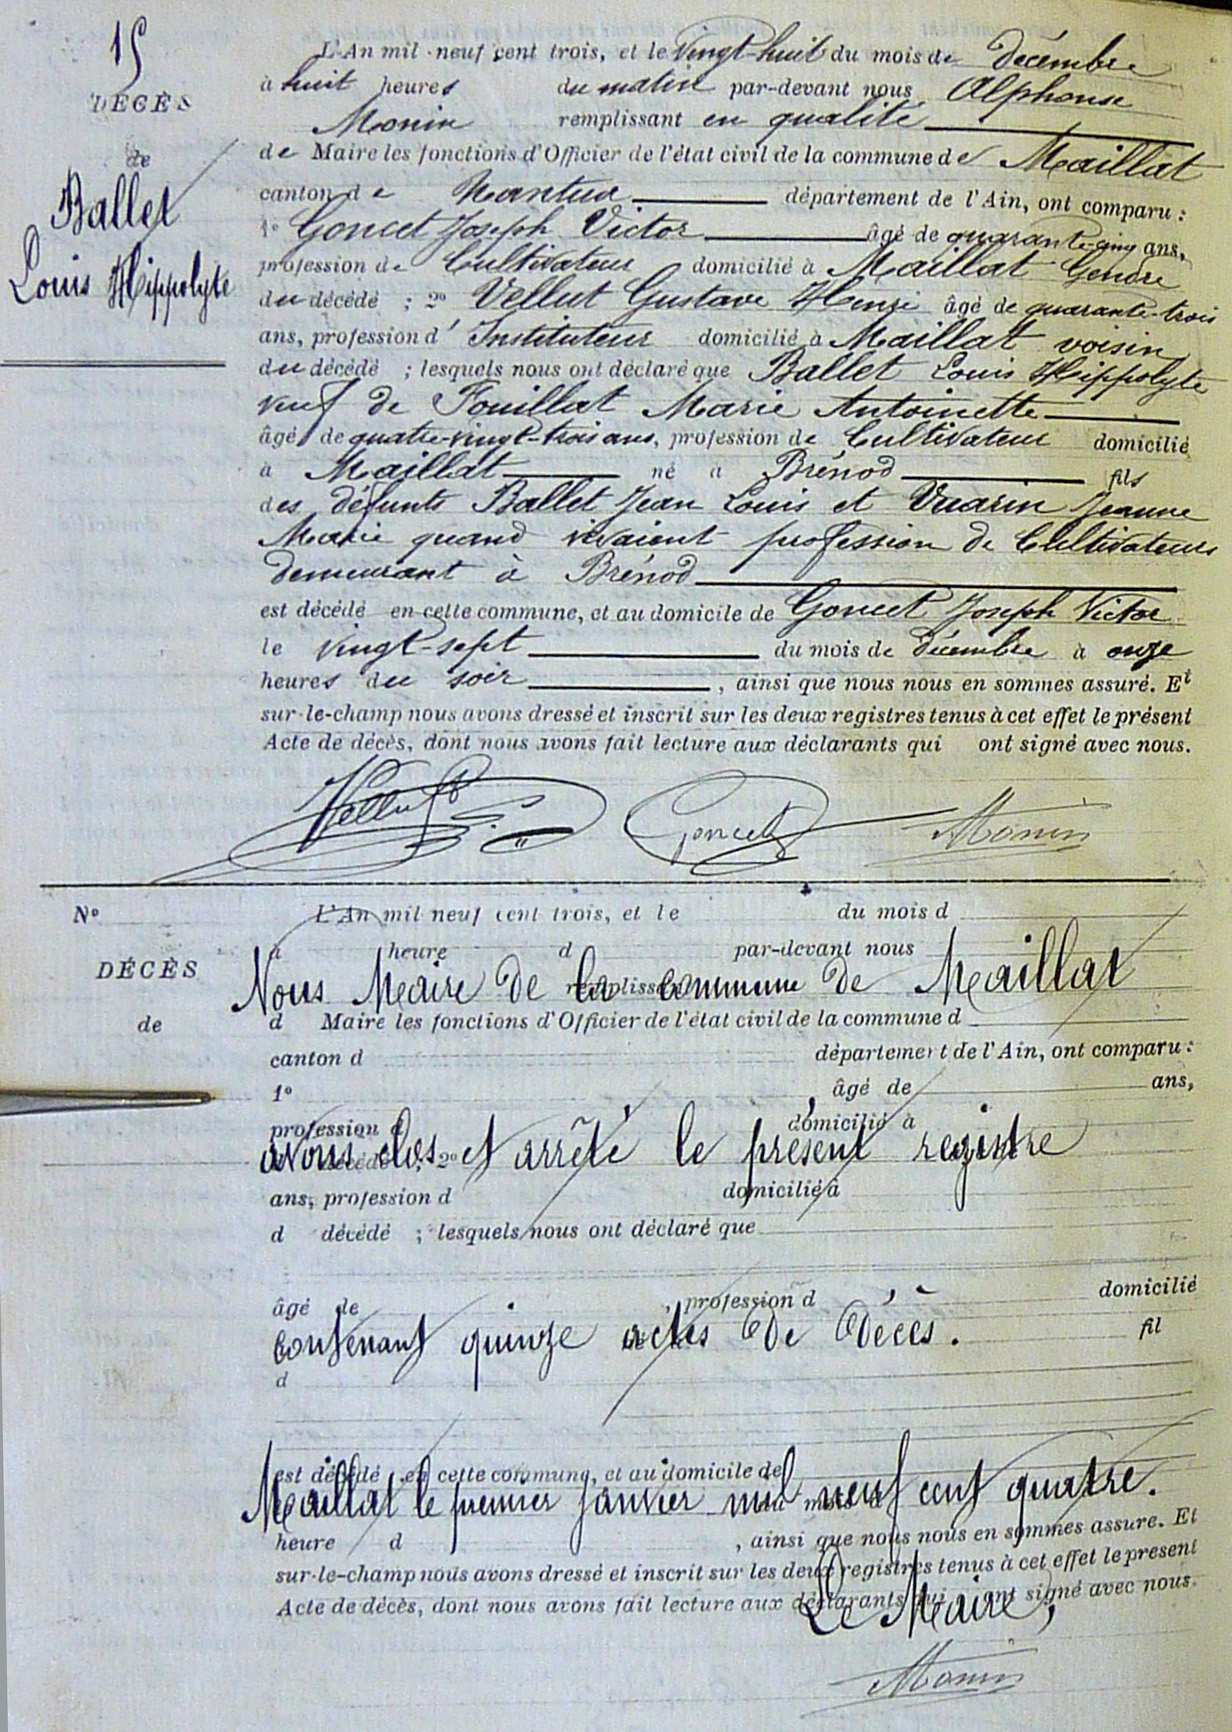 15
DÉCÈS
de
Ballet
Louis Hippolyte
L'An mil neuf cent trois, et le vingt-huit du mois de décembre
à huit heures du matin par-devant nous Alphonse
Monin remplissant en qualité
de Maire les fonctions d'Officier de l'état civil de la commune de Maillat
canton de Nantua département de l'Ain, ont comparu :
1° Goncet Joseph Victor âgé de quarante-cinq ans,
profession de Cultivateur domicilié à Maillat Gendre
du décédé ; 2° Vellut Gustave Henri âgé de quarante-trois
ans, profession d' Instituteur domicilié à Maillat voisin
du décédé ; lesquels nous ont déclaré que Ballet Louis Hippolyte
veuf de Fouillat Marie Antoinette
âgé de quatre-vingt-trois ans, profession de Cultivateur domicilié
à Maillat né à Brénod fils
des défunts Ballet Jean Louis et Vuarin Jeanne
Marie quand vivaient profession de Cultivateurs
demeurant à Brénod
est décédé en cette commune, et au domicile de Goncet Joseph Victor
le vingt-sept du mois de décembre à onze
heures du soir , ainsi que nous nous en sommes assuré. Et
sur-le-champ nous avons dressé et inscrit sur les deux registres tenus à cet effet le présent
Acte de décès, dont nous avons fait lecture aux déclarants qui ont signé avec nous.
Vellut Goncet Monin
N°
DÉCÈS
de
L'An mil neuf cent trois, et le du mois d
à heure d par-devant nous
Nous Maire de la commune de Maillat
remplissant
d Maire les fonctions d'Officier de l'état civil de la commune d
canton d département de l'Ain, ont comparu :
1° , âgé de ans,
profession d domicilié à
avons clos et arrêté le présent registre
d décédé ; 2°
ans, profession d domicilié à
d décédé ; lesquels nous ont déclaré que
âgé de , profession d domicilié
contenant quinze actes de décès.
fil
d
est décédé en cette commune, et au domicile de
Maillat le premier janvier mil neuf cent quatre.
du mois d
heure d , ainsi que nous nous en sommes assuré. Et
sur-le-champ nous avons dressé et inscrit sur les deux registres tenus à cet effet le présent
Acte de décès, dont nous avons fait lecture aux déclarants qui ont signé avec nous.
Le Maire,
Monin